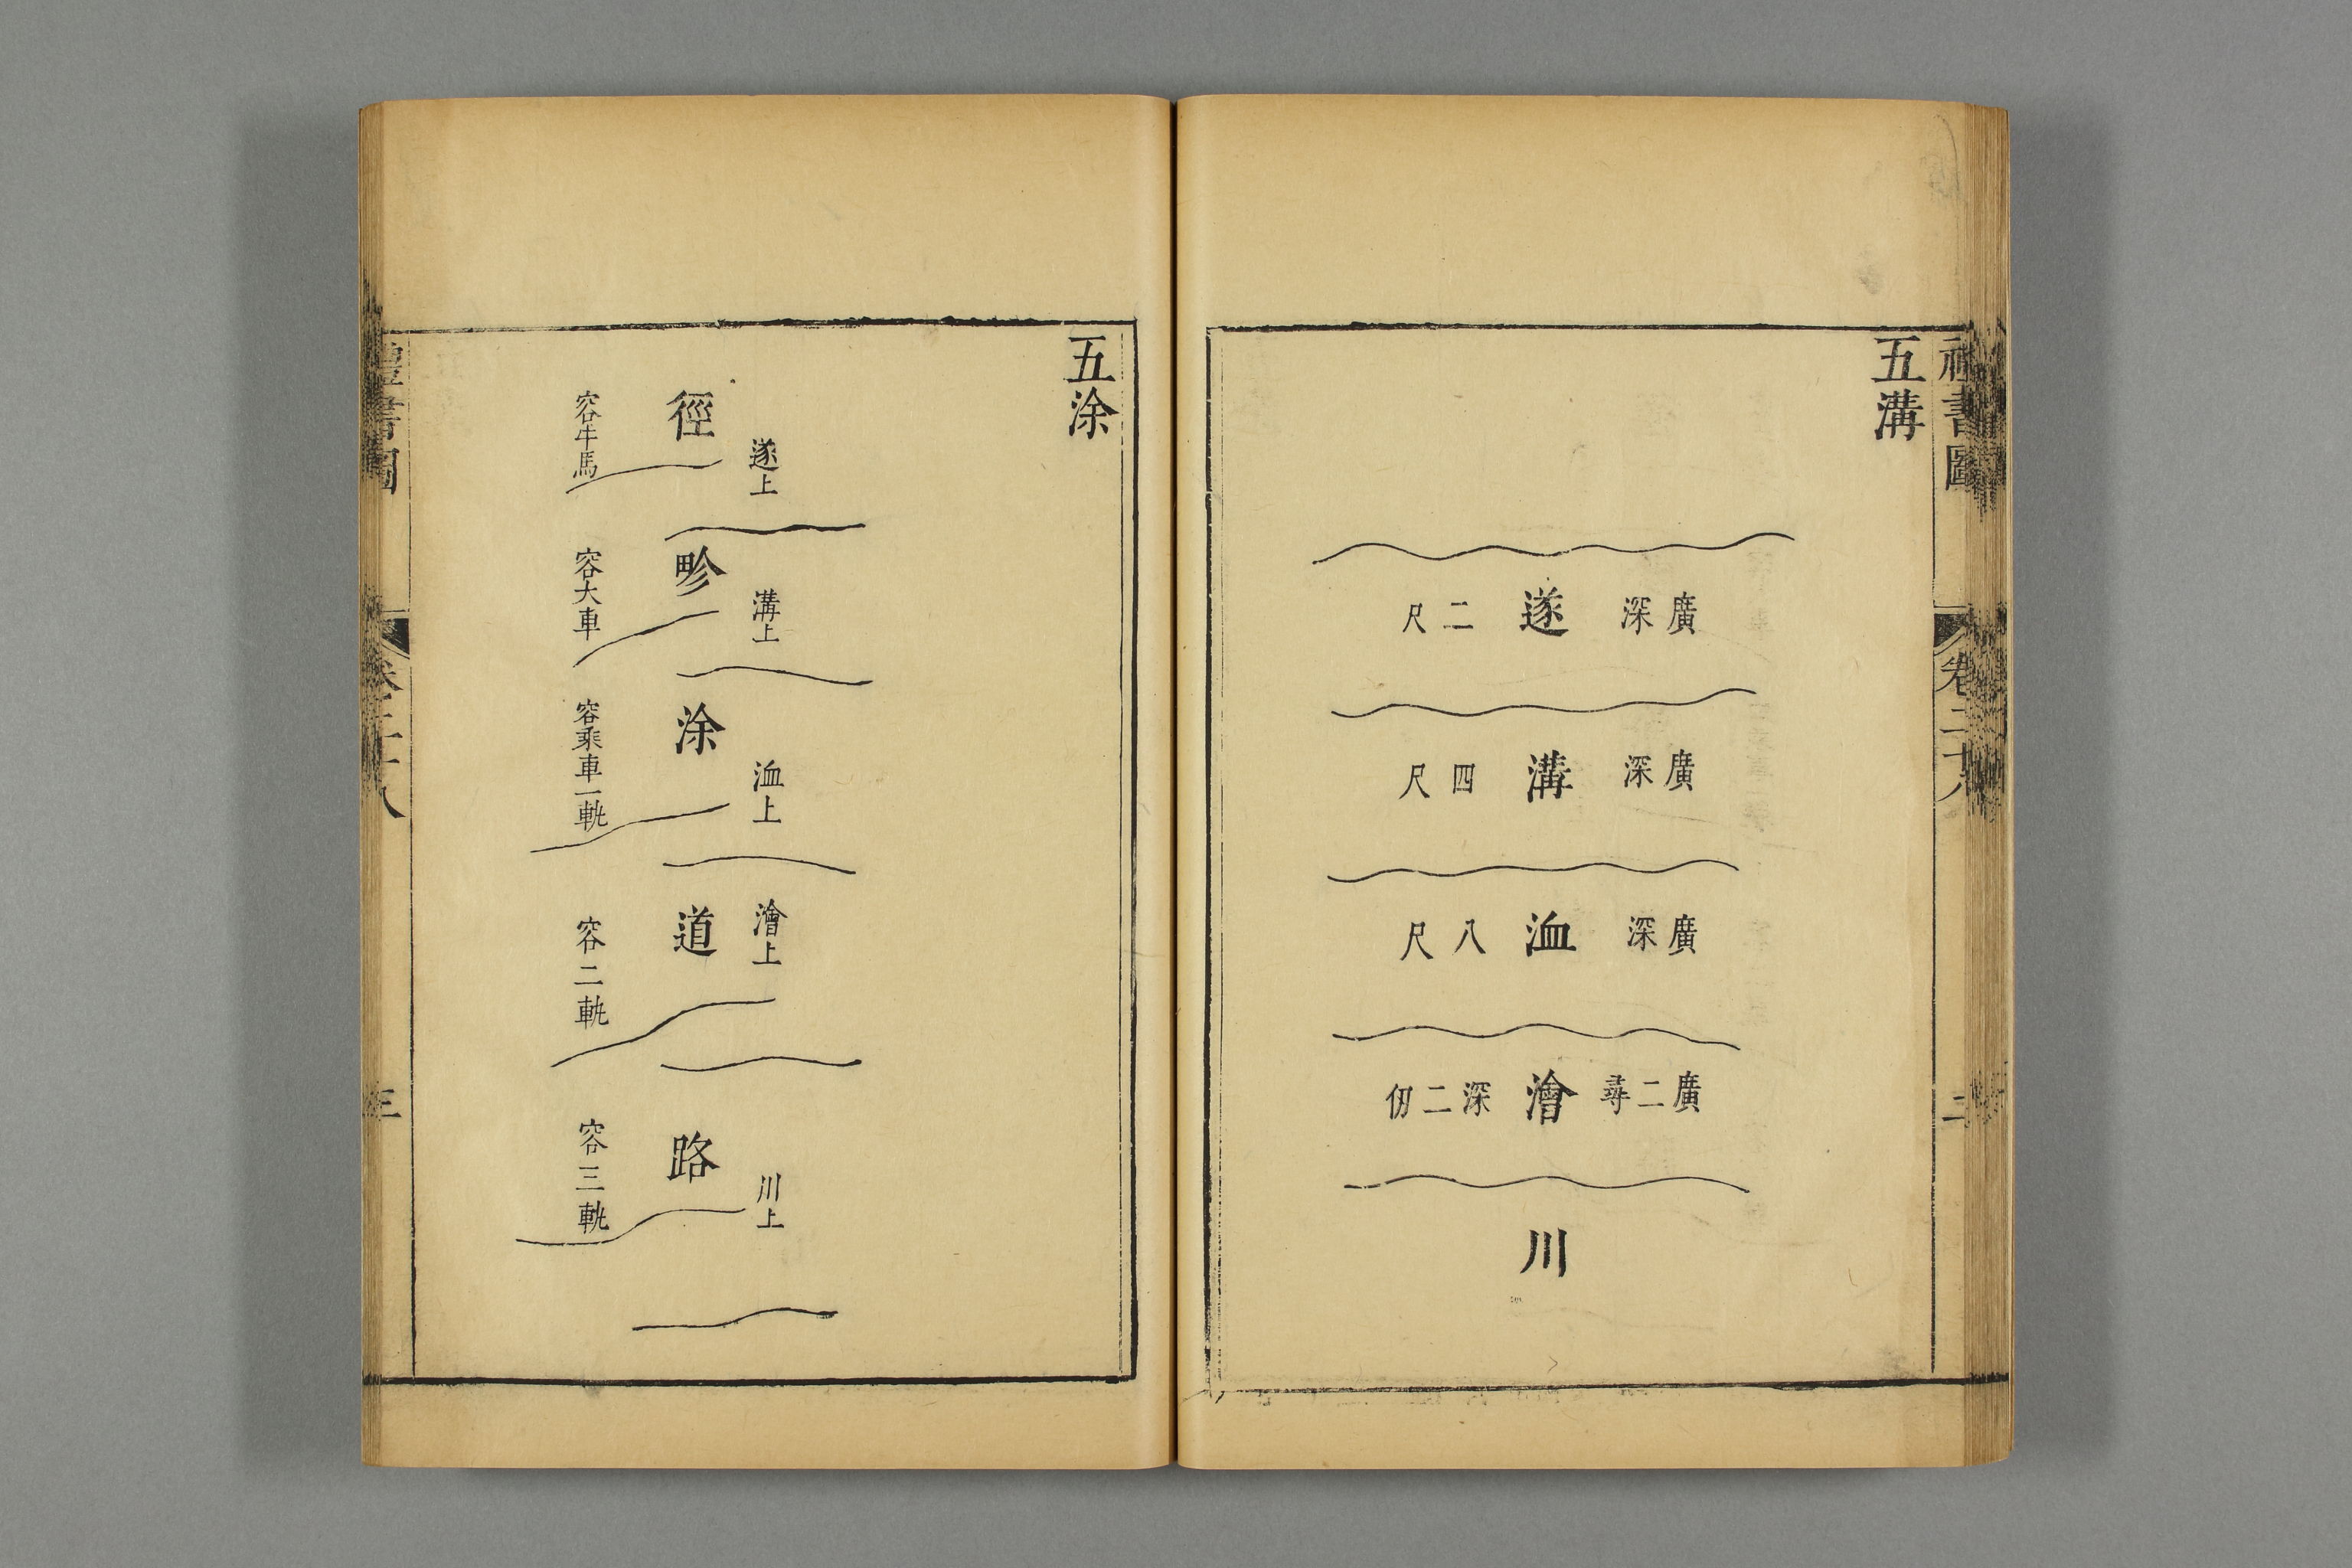 禮書圖　卷二十八　二
五溝
廣深 遂 二尺
廣深 溝 四尺
廣深 洫 八尺
廣二尋 澮 深二仞
川
五涂
遂上 徑 容牛馬
溝上 畛 容大車
洫上 涂 容乘車一軌
澮上 道 容二軌
川上 路 容三軌
禮書圖　卷二十八　三